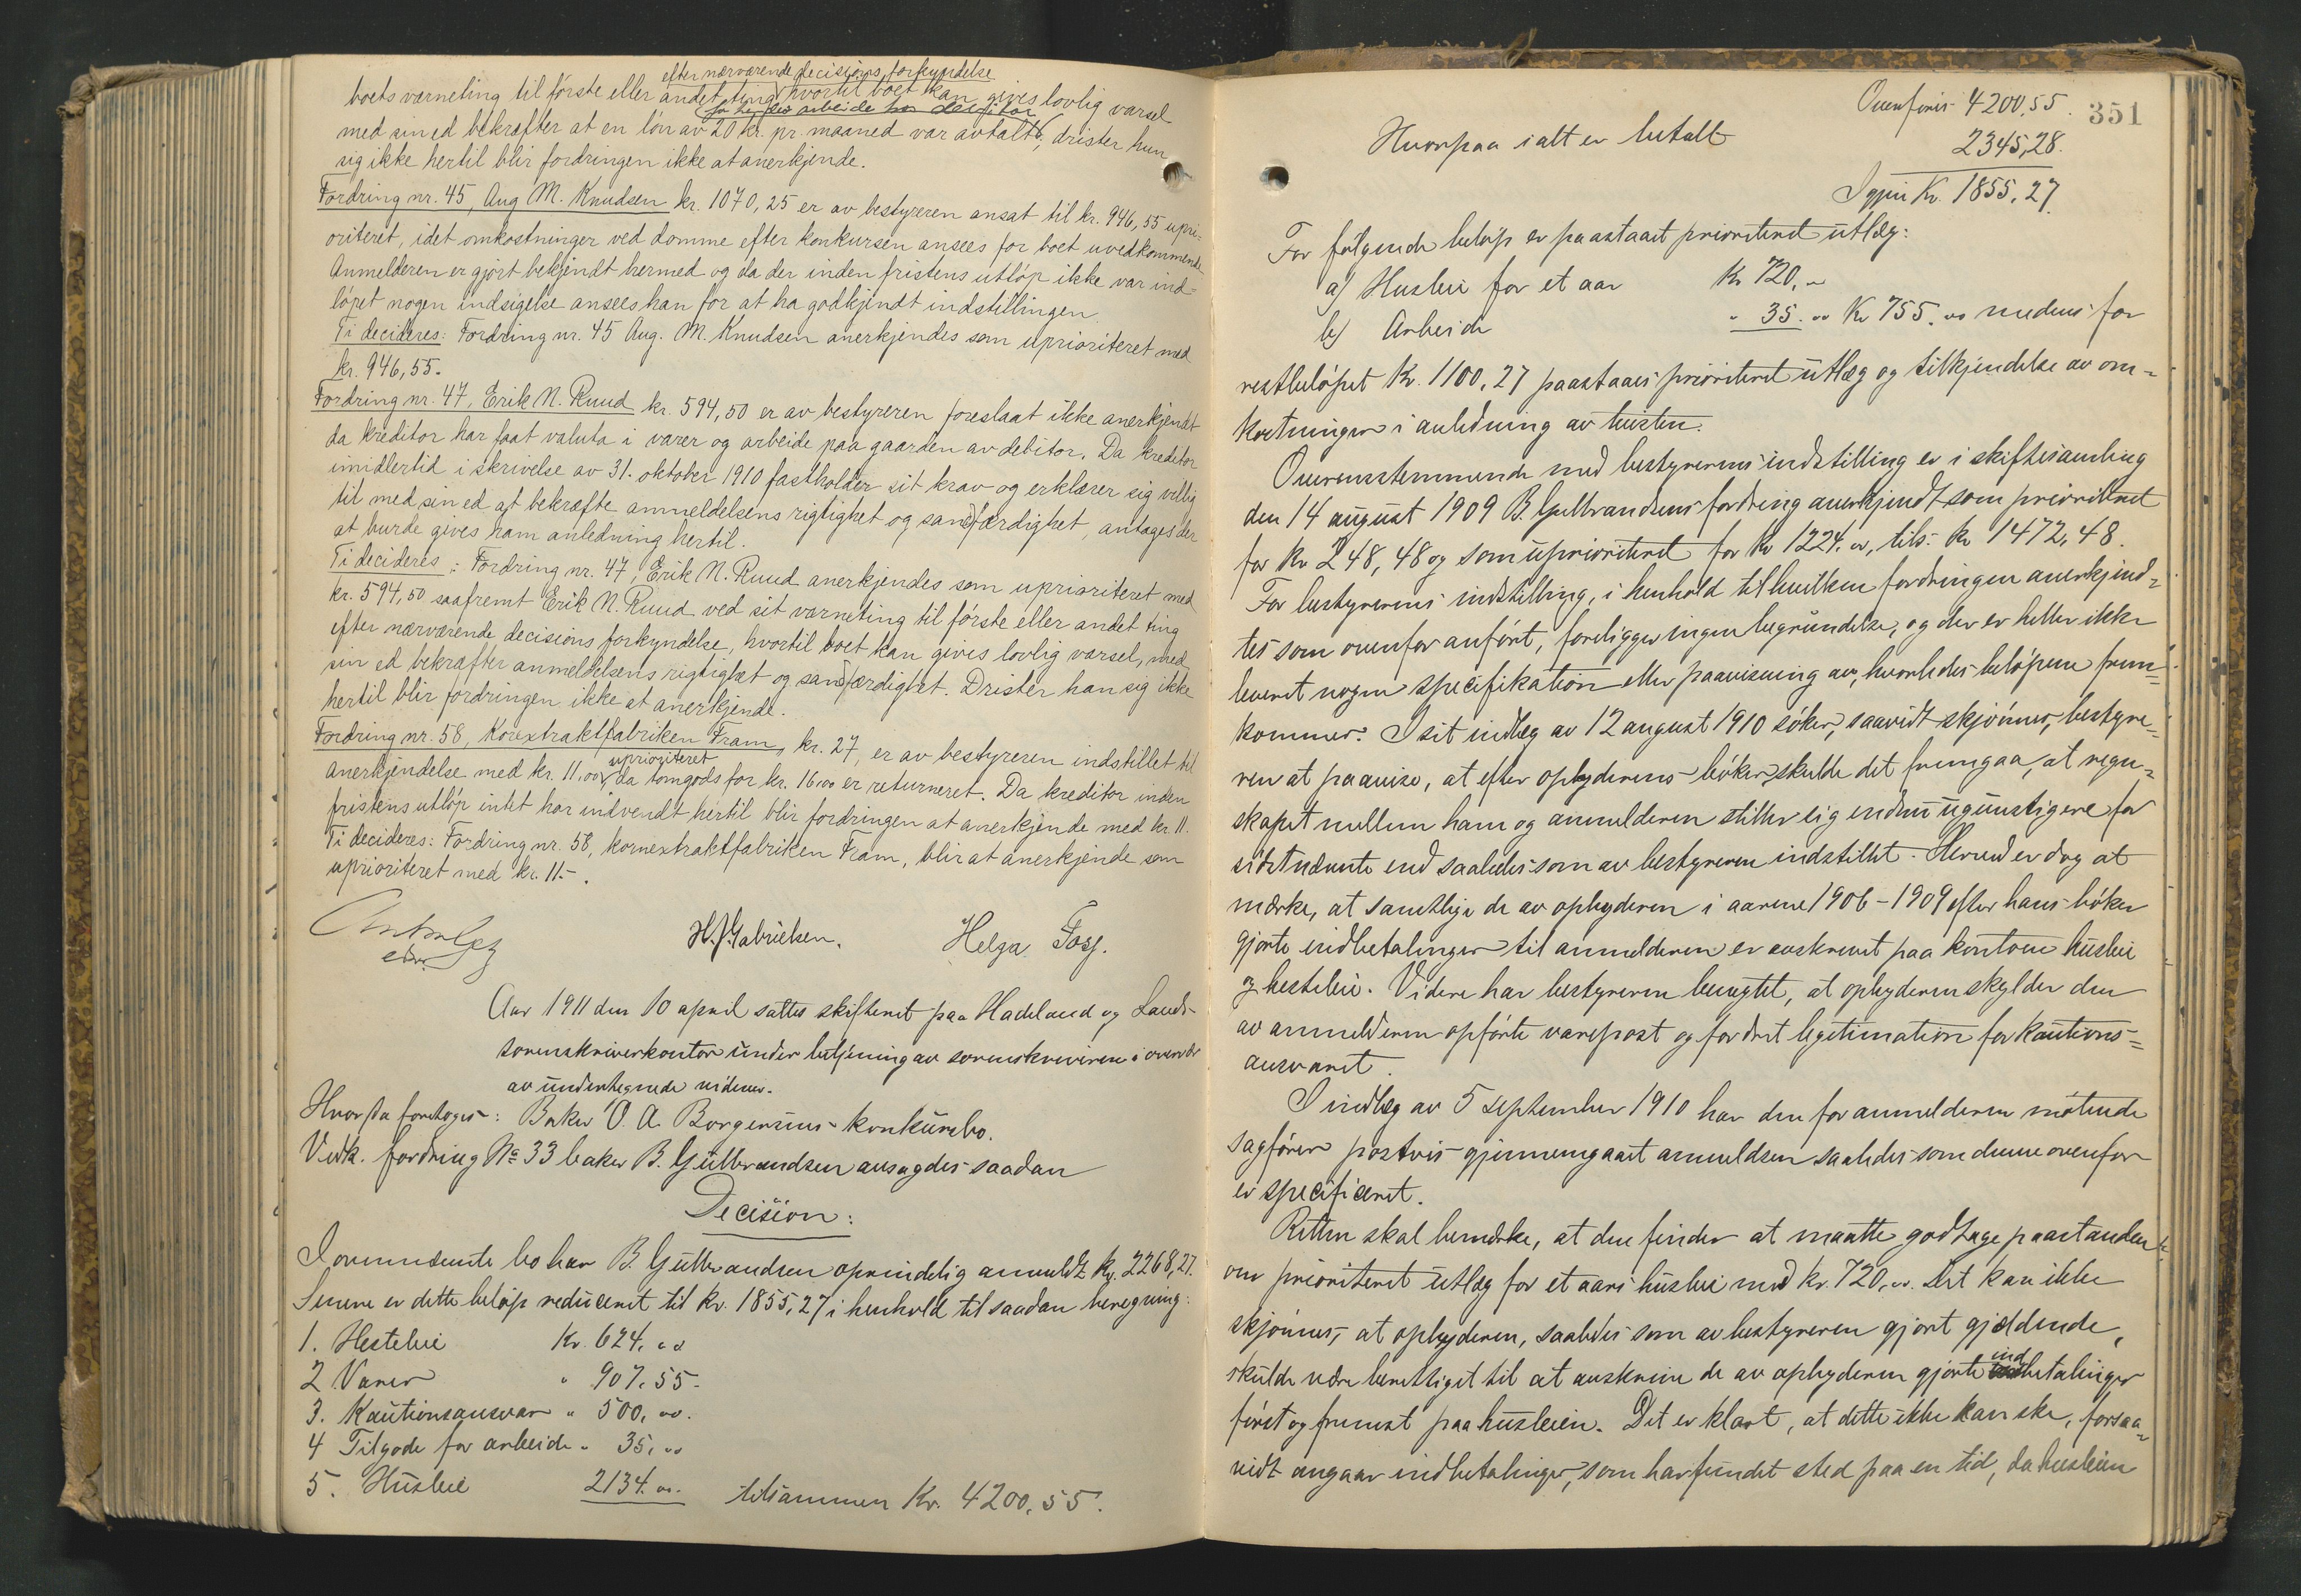 efter nærværende decisions forkyndelse
boets værneting til første eller andet ting hvortil boet kan gives lovlig varsel
for hendes arbeide hos debitor
med sin ed bekræfter at en løn av 20 kr. pr. maaned var avtalt, drister hun
sig ikke hertil blir fordringen ikke at anerkjende.
Fordring nr. 45, Aug M. Knudsen kr. 1070,25 er av bestyreren ansat til kr. 946,55 upri-
oriteret, idet omkostninger ved domme efter konkursen ansees for boet uvedkommende
Anmelderen er gjort bekjendt hermed og da der inden fristens utløp ikke var ind-
løpet nogen indsigelse ansees han for at ha godkjendt indstillingen.
Ti decideres: Fordring nr. 45 Aug. M. Knudsen anerkjendes som uprioriteret med
kr. 946,55.
Fordring nr. 47, Erik N. Ruud kr. 594,50 er av bestyreren foreslaat ikke anerkjendt
da kreditor har faat valuta i varer og arbeide paa gaarden av debitor. Da kreditor
imidlertid i skrivelse av 31. oktober 1910 fastholder sit krav og erklærer sig villig
til med sin ed at bekræfte anmeldelsens rigtighet og sandfærdighet, antages der
at burde gives ham anledning hertil.
Ti decideres: Fordring nr. 47, Erik N. Ruud anerkjendes som uprioriteret med
kr. 594,50 saafremt Erik N. Ruud ved sit værneting til første eller andet ting
efter nærværende decisions forkyndelse, hvortil boet kan gives lovlig varsel, med
sin ed bekræfter anmeldelsens rigtighet og sandfærdighet. Drister han sig ikke
hertil blir fordringen ikke at anerkjende.
Fordring nr. 58, Kornextraktfabriken Fram, kr. 27, er av bestyreren indstillet til
uprioriteret
anerkjendelse med kr. 11.00 da tomgods for kr. 16.00 er returneret. Da kreditor inden
fristens utløp intet har indvendt hertil blir fordringen at anerkjende med kr. 11.
Ti decideres: Fordring nr. 58, kornextraktfabriken Fram, blir at anerkjende som
uprioriteret med kr. 11.-.
H. J. Gabrielsen. Helga
Aar 1911 den 10 april sattes skifteret paa Hadeland og Lands
sorenskriverkontor under betjening av sorenskriveren i overvær
av undertegnede vidner.
Hvorda foretoges: Baker O. A. Borgersens konkursbo.
Vedk. fordring No 33 baker B. Gulbrandsen avsagdes saadan
Decision:
I ovennævnte bo har B. Gulbrandsen oprindelig anmeldt Kr. 2268,27.
Senere er dette beløp reduceret til kr. 1855,27 i henhold til saadan beregning:
1. Hesteleie Kr. 624. 00
2 Varer " 907.55.
3. Kautionsansvar " 500,00.
4 Tilgode for arbeide " 35,00
5. Husleie 2134.00. tilsammen Kr. 4200,55.
351
Overføres 4200,55.
Hvorpaa ialt er betalt 2345,28.
Igjen Kr. 1855,27.
For følgende beløp er paastaaet prioriteret utlæg:
a) Husleie for et aar Kr 720,00
b) Arbeide " 35.00 Kr 755.00 medens for
restbeløpet Kr. 1100,27 paastaaes prioriteret utlæg og tilkjendelse av om-
kostninger i anledning av tvisten.
Overensstemmende med bestyrerens indstilling er i skiftesamling
den 14 august 1909 B. Gulbrandsens fordring anerkjendt som prioriteret
for kr 248,48 og som uprioriteret for kr 1224.00, tils. kr 1472,48.
For bestyrerens indstilling, i henhold til hvilken fordringen anerkjend-
tes som ovenfor anført, foreligger ingen begrundelse, og der er heller ikke
leveret nogen specifikation eller paavisning av, hvorledes beløpene frem-
kommer. I sit indlæg av 12 august 1910 søker, saavidt skjønnes, bestyre-
ren at paavise, at efter opbyderens bøker skulde det fremgaa, at regn-
skapet mellem ham og anmelderen stiller sig endnu ugunstigere for
sidstnævnte end saaledes som av bestyreren indstillet. Herved er dog at
mærke, at samtlige de av opbyderen i aarene 1906-1909 efter hans bøker
gjorte indbetalinger til anmelderen er avskrevet paa kontoene husleie
og hesteleie. Videre har bestyreren benegtet, at opbyderen skylder den
av anmelderen opførte varepost og fordret legitimation for kautions-
ansvaret.
I indlæg av 5 september 1910 har den for anmelderen møtende
sagfører postvis gjennemgaaet anmeldsen saaledes som denne ovenfor
er specificeret.
Retten skal bemærke, at den finder at maatte godtage paastanden
om prioriteret utlæg for et aars husleie med kr. 720,00. Det kan ikke
skjønnes, at opbyderen, saaledes som av bestyreren gjort gjældende,
skulde være berettiget til at avskrive de av opbyderen gjorte indbetalinger
først og fremst paa husleien. Det er klart, at dette ikke kan ske, forsaa-
vidt angaar indbetalinger, som har fundet sted paa en tid, da husleien